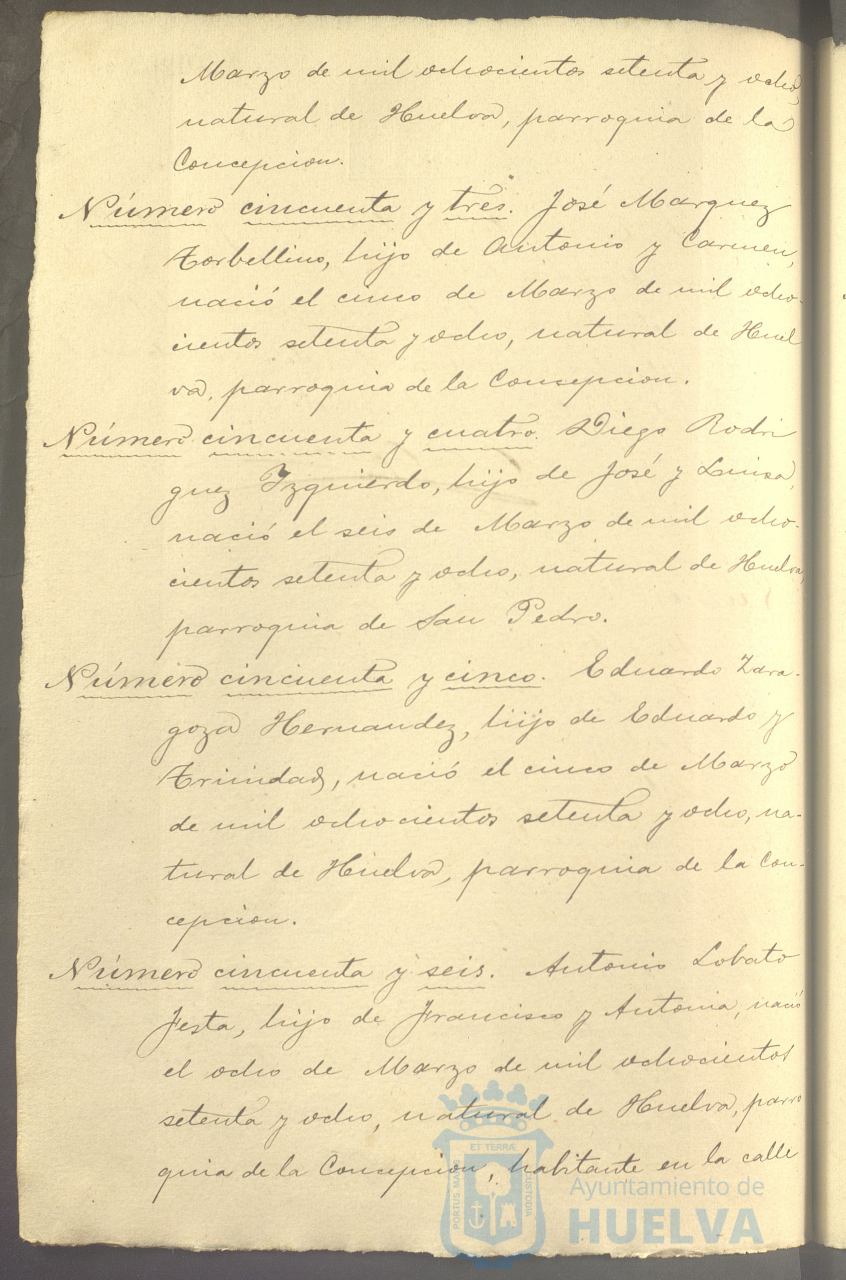 Marzo de mil ochocientos setenta y ocho,
natural de Huelva, parroquia de la
Concepcion.
Número cincuenta y tres. José Marquez
Torbellino, hijo de Antonio y Carmen,
nació el cinco de Marzo de mil ocho-
cientos setenta y ocho, natural de Huel
va, parroquia de la Concepcion.
Número cincuenta y cuatro. Diego Rodri
guez Izquierdo, hijo de José y Luisa,
nació el seis de Marzo de mil ocho-
cientos setenta y ocho, natural de Huelva,
parroquia de San Pedro.
Número cincuenta y cinco. Eduardo Zara-
goza Hernandez, hijo de Eduardo y
Trinidad, nació el cinco de Marzo
de mil ochocientos setenta y ocho, na-
tural de Huelva, parroquia de la Con-
cepcion.
Número cincuenta y seis. Antonio Lobato
Festa, hijo de Francisco y Antonia, nació
el ocho de Marzo de mil ochocientos
setenta y ocho, natural de Huelva, parro
quia de la Concepcion, habitante en la calle
PORTUS MARIS ET TERRAE CUSTODIA
Ayuntamiento de
HUELVA